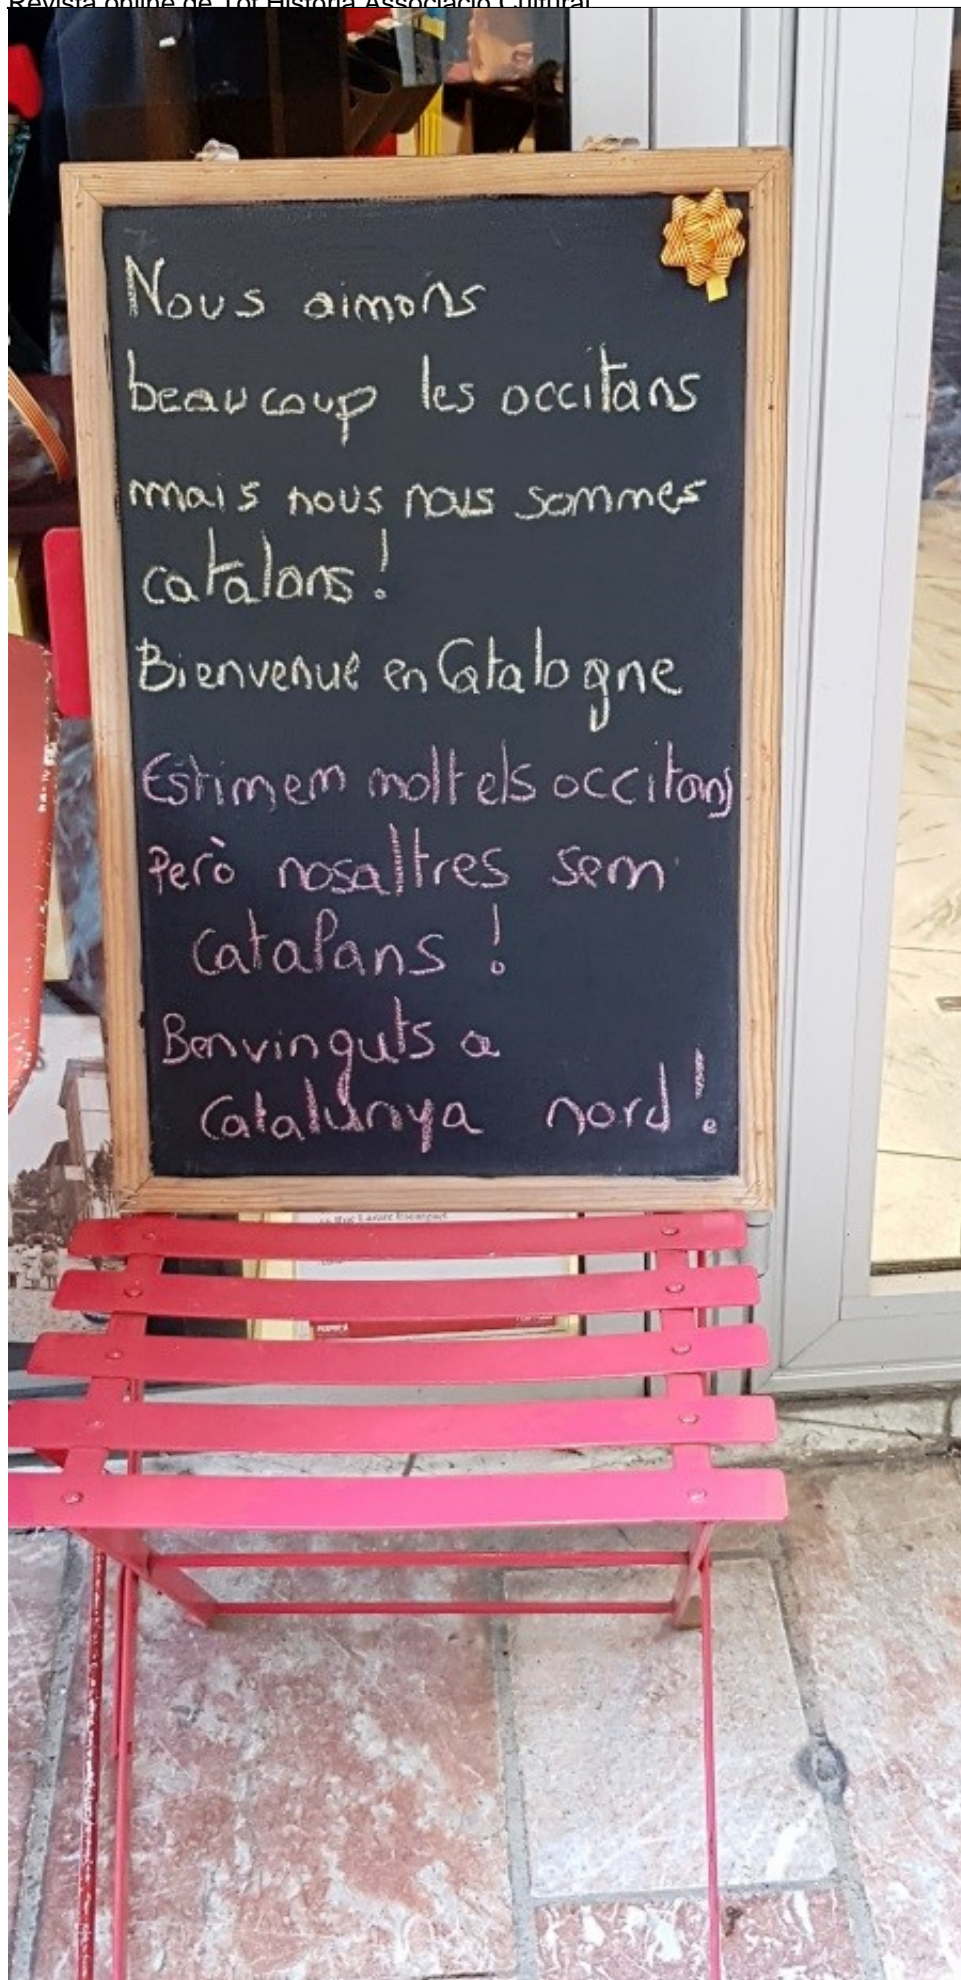 Revista online de Tot Història Associació Cultural
Nous aimons
beaucoup les occitans
mais nous nous sommes
catalans!
Bienvenue en Catalogne
Estimem molt els occitans
Però nosaltres sem
catalans !
Benvinguts a
Catalunya nord!